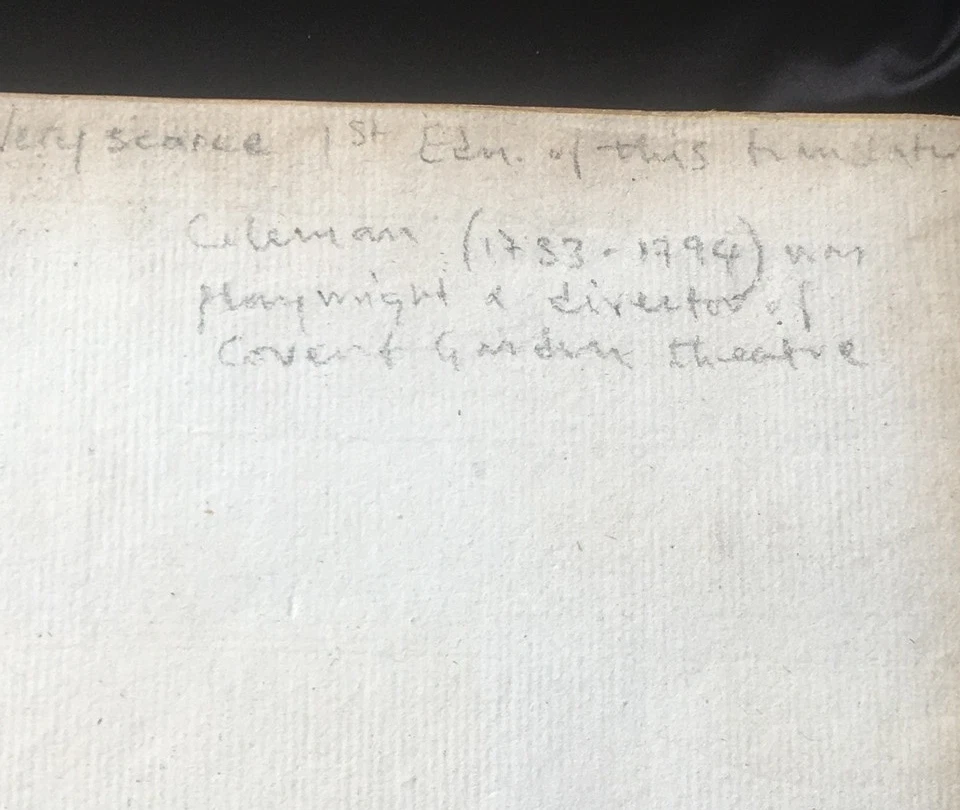 Very scarce 1st Edn. of this translatio
Coleman (1733-1794) was
playwright & director of
Covent Garden theatre